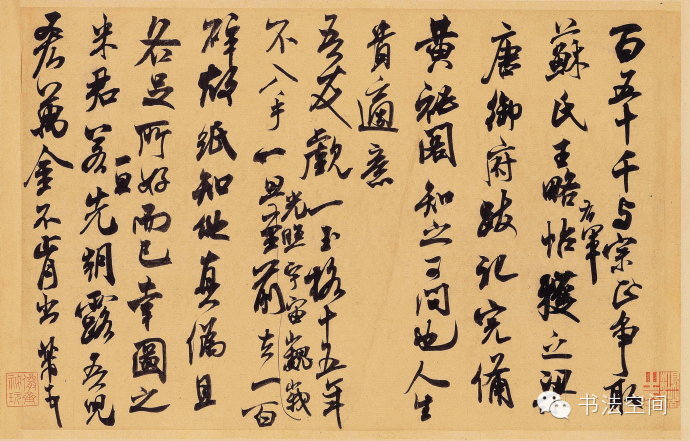 百五十千与宗正争取
蘇氏王略帖右軍獲之
唐御府跋記完備
黄秘阁知之可问也人生
貴適意
吾友觀一玉格十五年
不入手一旦光照宇宙巍峩至前去一百
碎故纸知他真偽且
各足所好而已幸圖之
米君若一旦先朝露吾兒
吝萬金不肯出芾頓首
书法空间